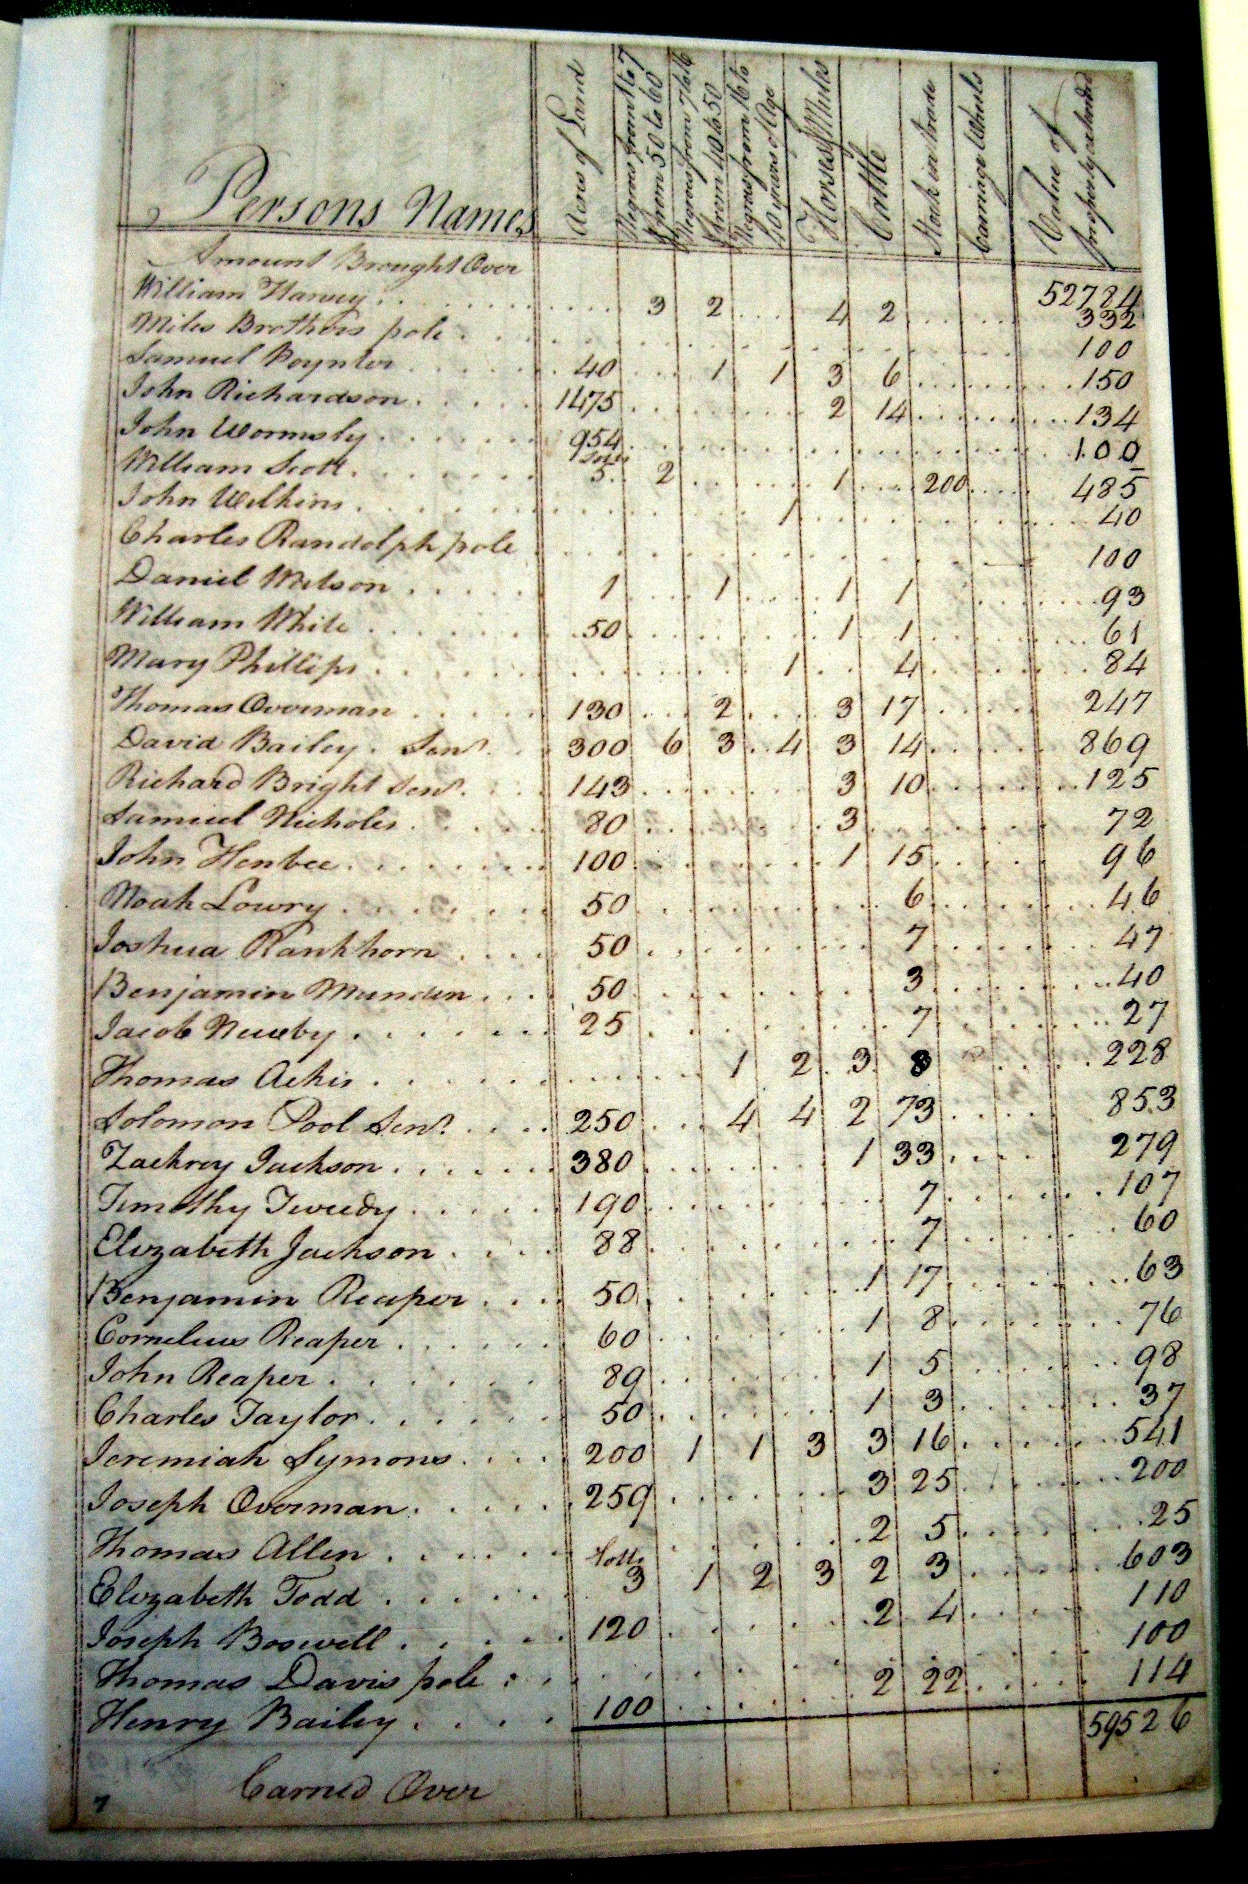 Persons Names Acres of Land Negroes from 1 to 7 & from 50 to 60 Negroes from 7 to 16 & from 40 to 50 Negroes from 16 to 40 years of Age Horses & Mules Cattle Stock in trade Carriage Wheels Value of property calcul
Amount Brought Over 52784
William Harvey 3 2 4 2 332
Miles Brothers pole 100
Samuel Poynter 40 1 1 3 6 150
John Richardson 1475 2 14 134
John Wormsly 954 100
William Scott Lotts 5 2 1 200 485
John Wilkins 1 40
Charles Randolph pole 100
Daniel Wilson 1 1 1 1 93
William White 50 1 1 61
Mary Phillips 1 4 84
Thomas Overman 130 2 3 17 247
David Bailey Senr. 300 6 3 4 3 14 869
Richard Bright Senr. 143 3 10 125
Samuel Nicholes 80 3 72
John Henbee 100 1 15 96
Noah Lowry 50 6 46
Joshua Rankhorn 50 7 47
Benjamin Munden 50 3 40
Jacob Newby 25 7 27
Thomas Ackis 1 2 3 8 228
Solomon Pool Senr. 250 4 4 2 73 853
Zachrey Jackson 380 1 33 279
Timothy Tweedy 190 7 107
Elizabeth Jackson 88 7 60
Benjamin Reaper 50 1 17 63
Cornelius Reaper 60 1 8 76
John Reaper 89 1 5 98
Charles Taylor 50 1 3 37
Jeremiah Symons 200 1 1 3 3 16 541
Joseph Overman 259 3 25 200
Thomas Allen 2 5 25
Elizabeth Todd Lotts 3 1 2 3 2 3 603
Joseph Boswell 120 2 4 110
Thomas Davis pole 100
Henry Bailey 100 2 22 114
Carried Over 59526
7